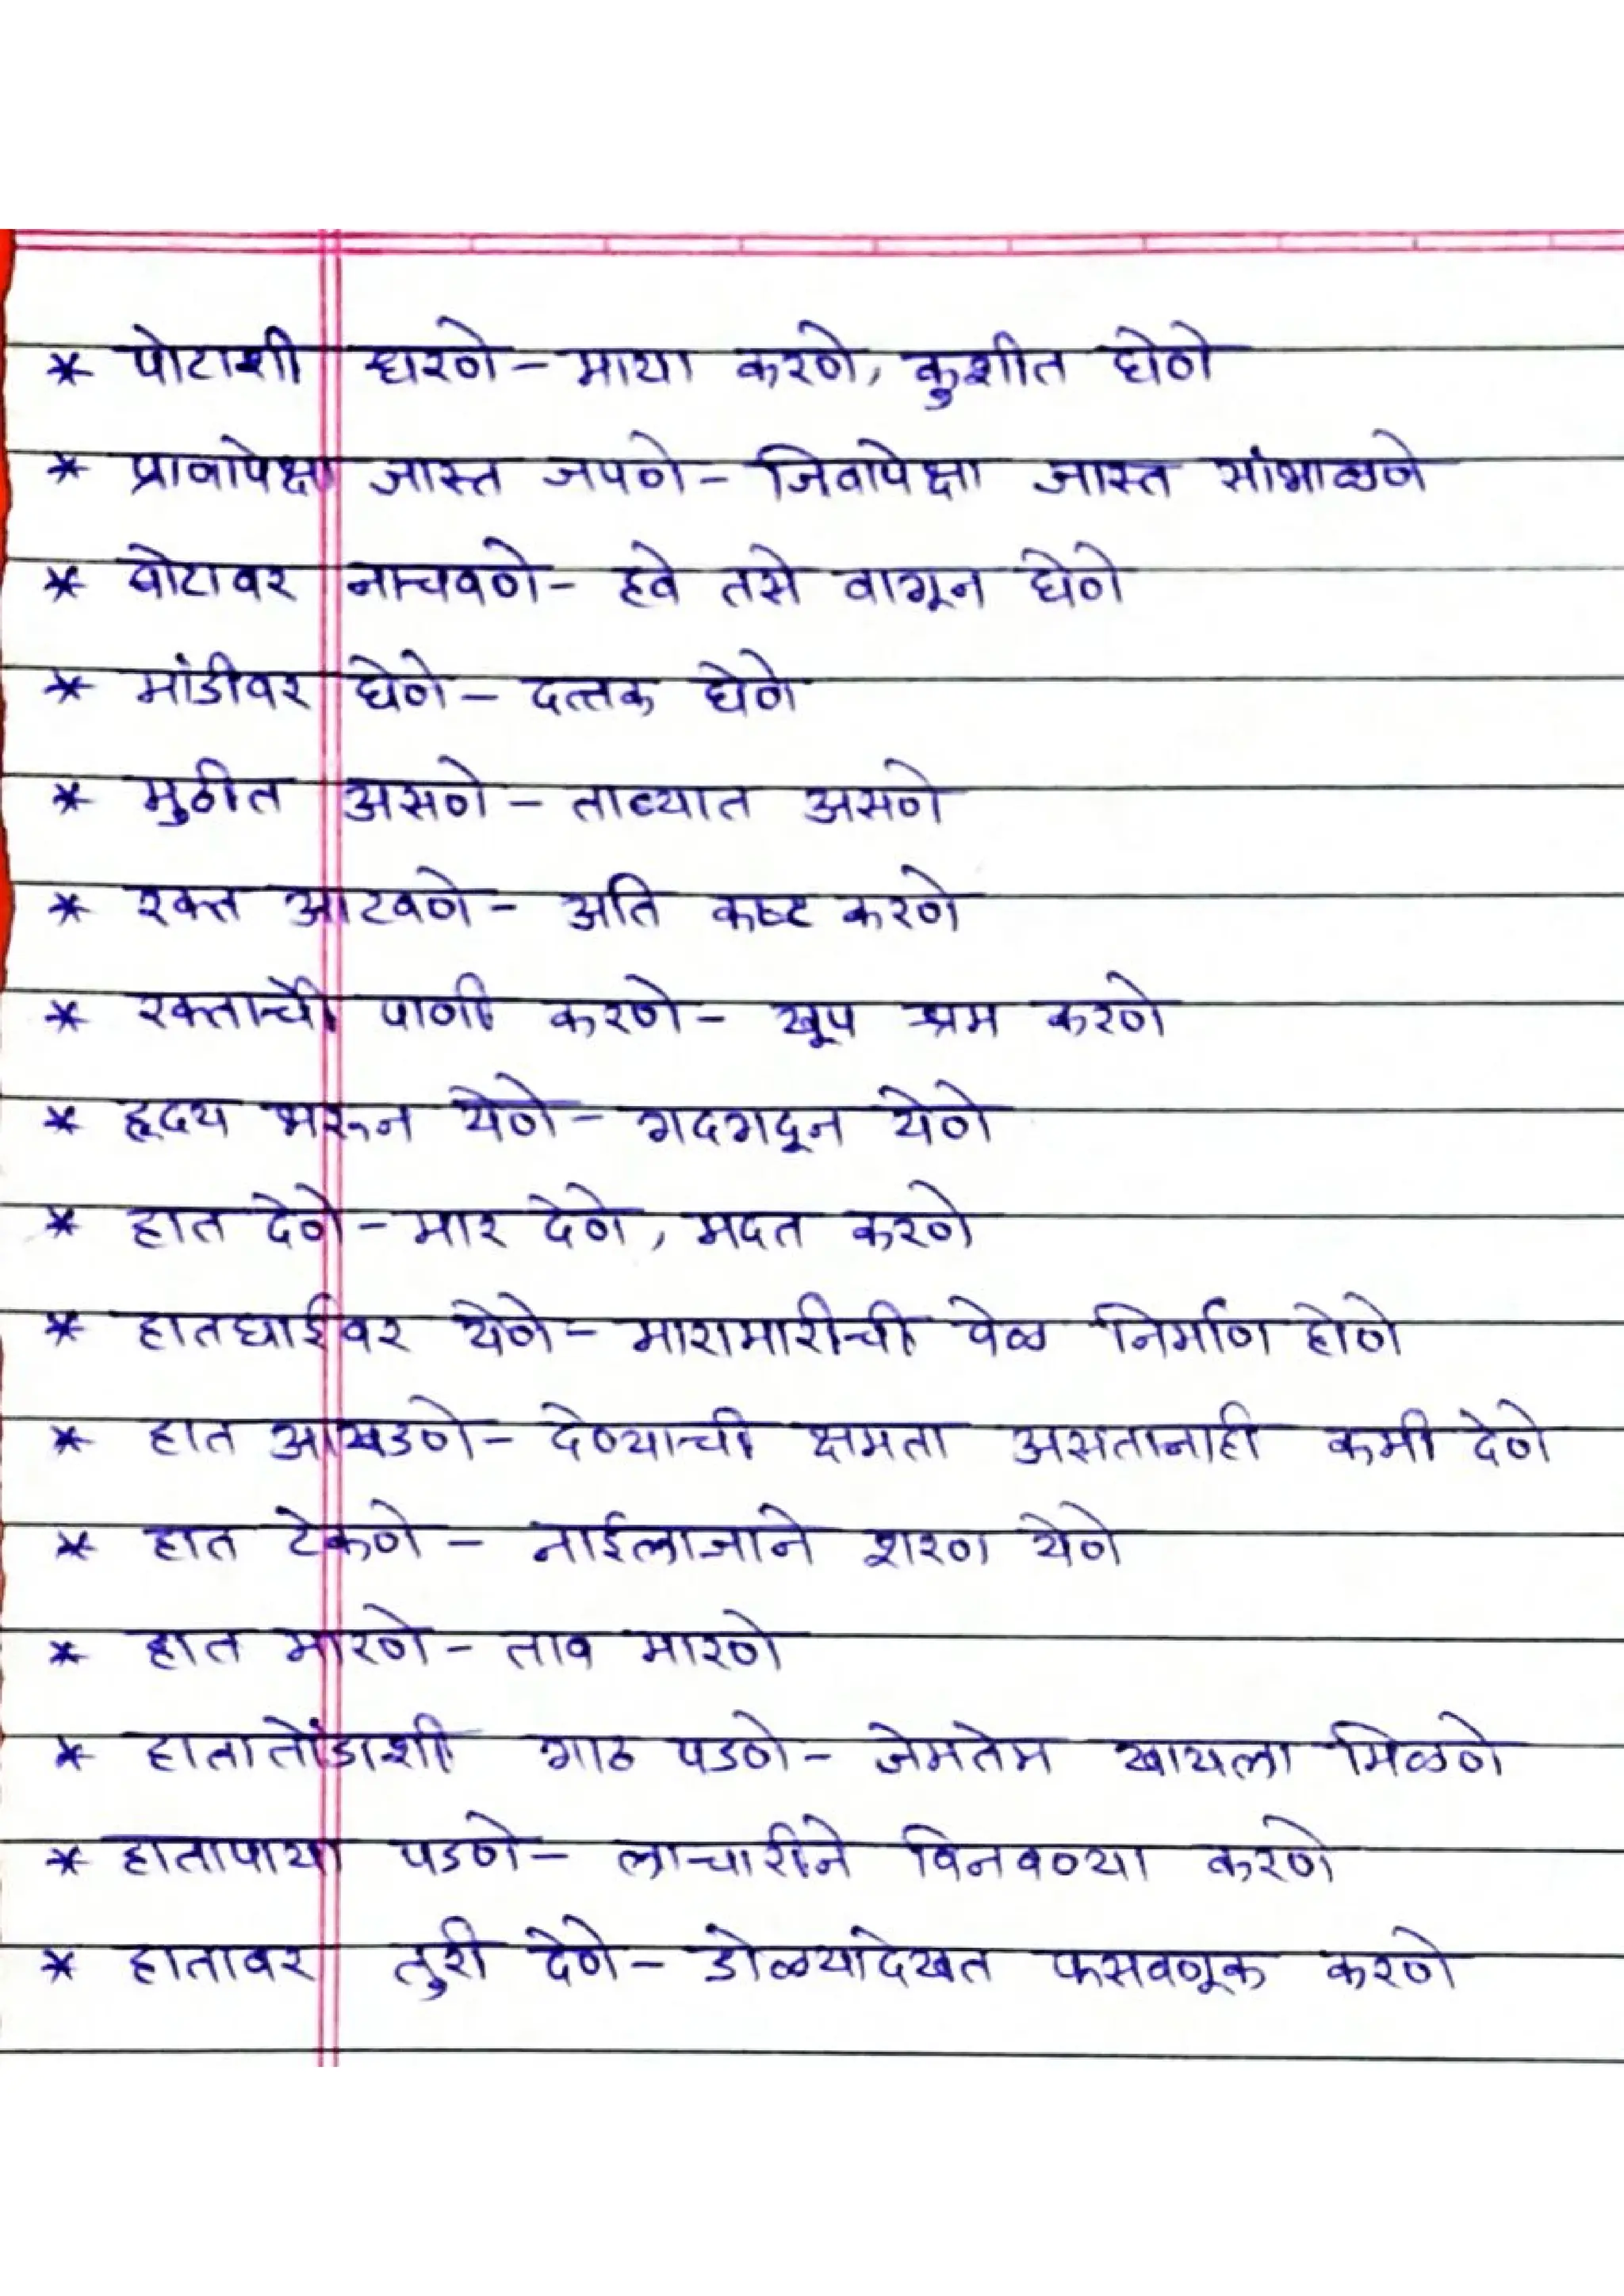 * पोटाशी धरणे – माया करणे, कुशीत घेणे
* प्राणापेक्षा जास्त जपणे – जिवापेक्षा जास्त सांभाळणे
* बोटावर नाचवणे – हवे तसे वागून घेणे
* मांडीवर घेणे – दत्तक घेणे
* मुठीत असणे – ताब्यात असणे
* रक्त आटवणे – अति कष्ट करणे
* रक्ताचे पाणी करणे – खूप श्रम करणे
* हृदय भरून येणे – गदगदून येणे
* हात देणे – मार देणे, मदत करणे
* हातघाईवर येणे – मारामारीची वेळ निर्माण होणे
* हात आखडणे – देण्याची क्षमता असतानाही कमी देणे
* हात टेकणे – नाईलाजाने शरण येणे
* हात मारणे – ताव मारणे
* हातातोंडाशी गाठ पडणे – जेमतेम खायला मिळणे
* हातापाया पडणे – लाचारीने विनवण्या करणे
* हातावर तुरी देणे – डोळ्यादेखत फसवणूक करणे